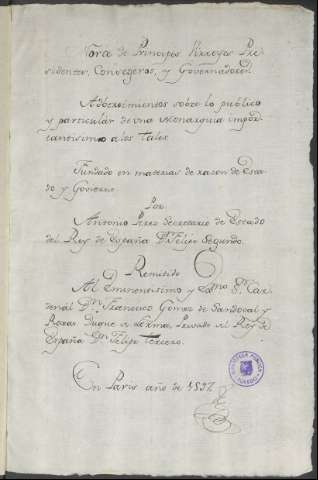 Norte de Principes Virreyes Pre
sidentes, Consegeros, y Governadores
Advertimientos sobre lo público
y particular de una Monarquia impor
tantisimos a los tales
Fundado en materias de razon de Esta
do y Govierno
Por
Antonio Perez Secretario de Estado
del Rey de España Dn. Felipe Segundo.
Remitido
Al Eminentisimo y Exmo Sr. Car
denal Dn. Francisco Gomez de Sandoval y
Roxas Duque de Lerma, Privado del Rey de
España Dn. Felipe tercero.
En Paris año de
BIBLIOTECA PUBLICA